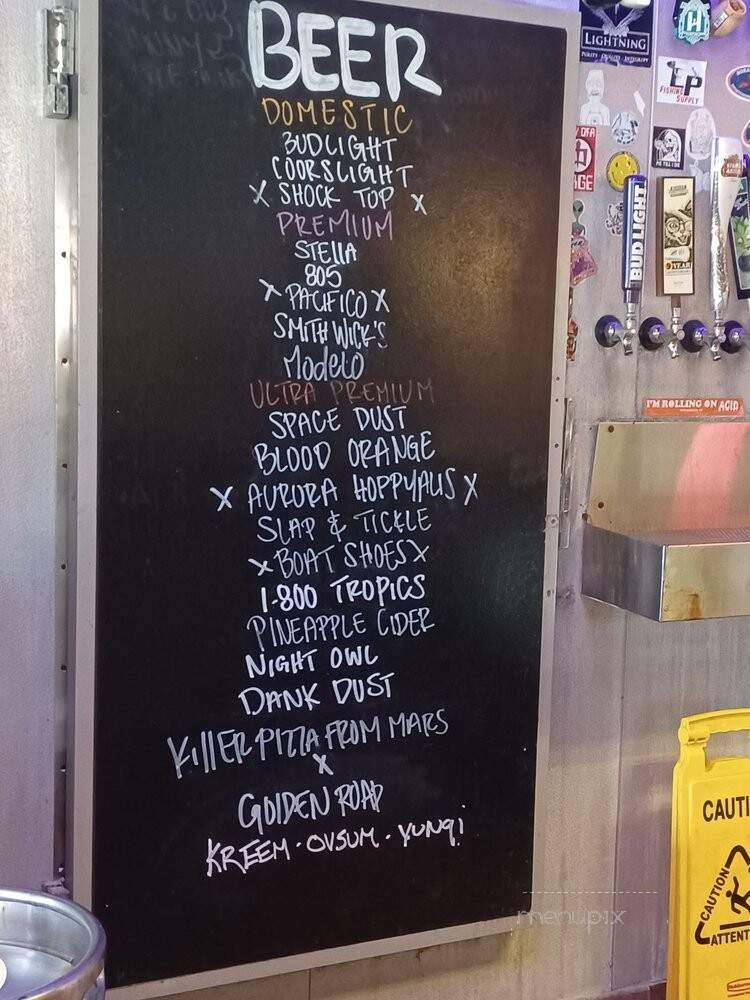 BEER
DOMESTIC
BUDLIGHT
COORSLIGHT
X SHOCK TOP X
PREMIUM
STELLA
805
X PACIFICO X
SMITHWICK'S
Modelo
ULTRA PREMIUM
SPACE DUST
BLOOD ORANGE
X AURORA HOPPYALIS X
SLAP & TICKLE
X BOAT SHOES X
1-800 TROPICS
PINEAPPLE CIDER
NIGHT OWL
DANK DUST
KIllER PIZZA FROM MARS
X
GOLDEN ROAD
KREEM · OVSUM · YUNQi
LIGHTNING
LP
FISHING SUPPLY
BUD LIGHT
I'M ROLLING ON ACID
CAUTI
CAUTION
ATTENT
menupix